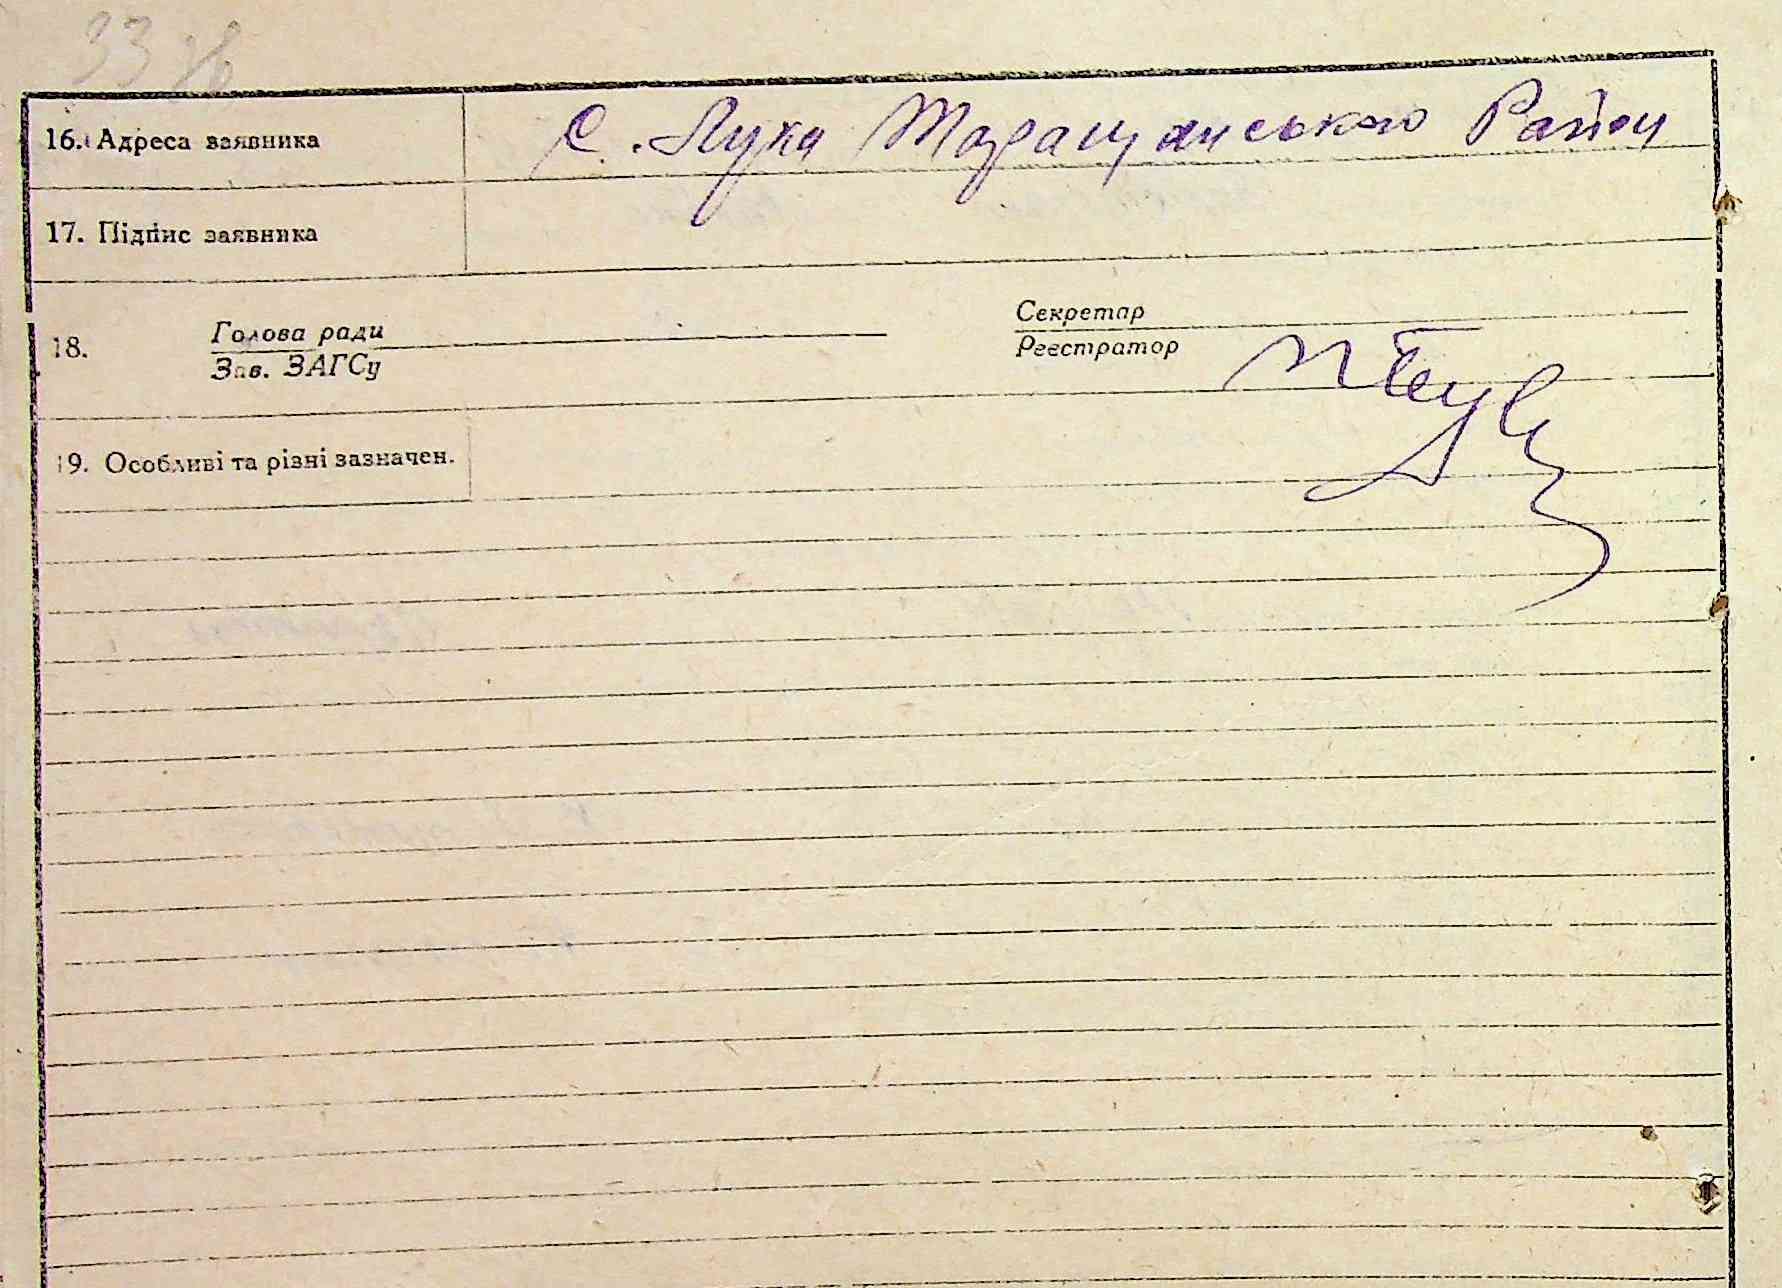 33
16. Адреса заявника с. Лука Таращанського Району
17. Підпис заявника
18. Голова ради Секретар
Зав. ЗАГСу Реєстратор
19. Особливі та різні зазначен.